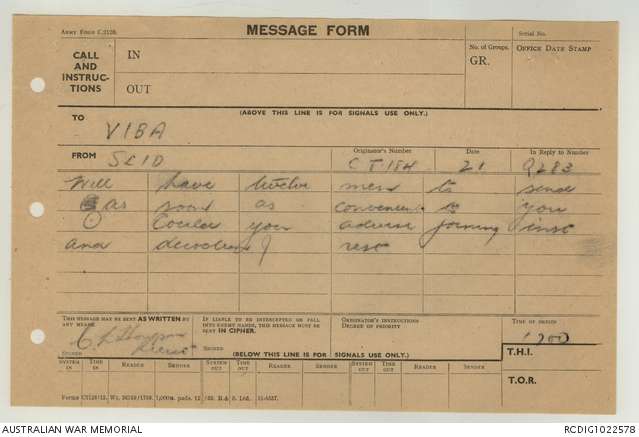 Army Form C.2128.
MESSAGE FORM
Serial No.
CALL AND INSTRUCTIONS
IN
OUT
No. of Groups.
GR.
OFFICE DATE STAMP
(ABOVE THIS LINE IS FOR SIGNALS USE ONLY.)
TO VIBA
FROM SLID
Originator's Number CT184
Date 21
In Reply to Number Q283
Will have twelve men to send
as soon as convenient to you
Could you advise joining inst
and of rest
THIS MESSAGE MAY BE SENT AS WRITTEN BY ANY MEANS.
SIGNED
IF LIABLE TO BE INTERCEPTED OR FALL INTO ENEMY HANDS, THIS MESSAGE MUST BE SENT IN CIPHER.
SIGNED
ORIGINATOR'S INSTRUCTIONS
DEGREE OF PRIORITY
TIME OF ORIGIN
1200
(BELOW THIS LINE IS FOR SIGNALS USE ONLY.)
T.H.I.
SYSTEM IN TIME IN READER SENDER SYSTEM OUT TIME OUT READER SENDER SYSTEM OUT TIME OUT READER SENDER
T.O.R.
AUSTRALIAN WAR MEMORIAL
RCDIG1022578